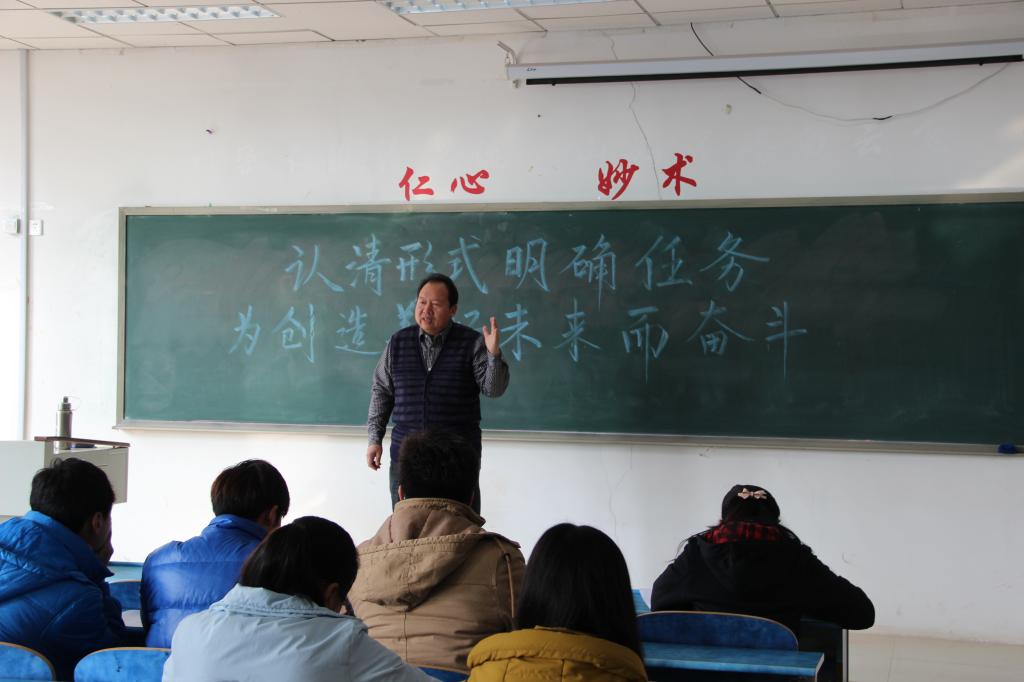 仁心 妙术
认清形式明确任务
为创造美好未来而奋斗